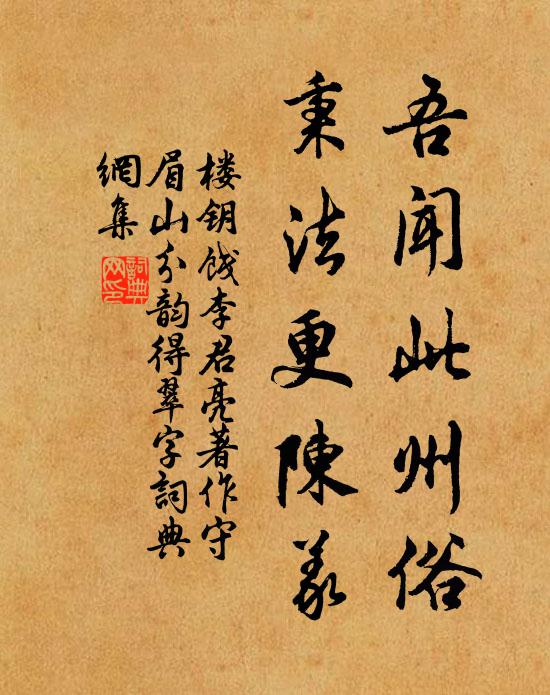 吾闻此州俗
秉法更陳義
楼钥餞李君亮著作守
眉山分韵得翠字詞典
網集
詞典網印